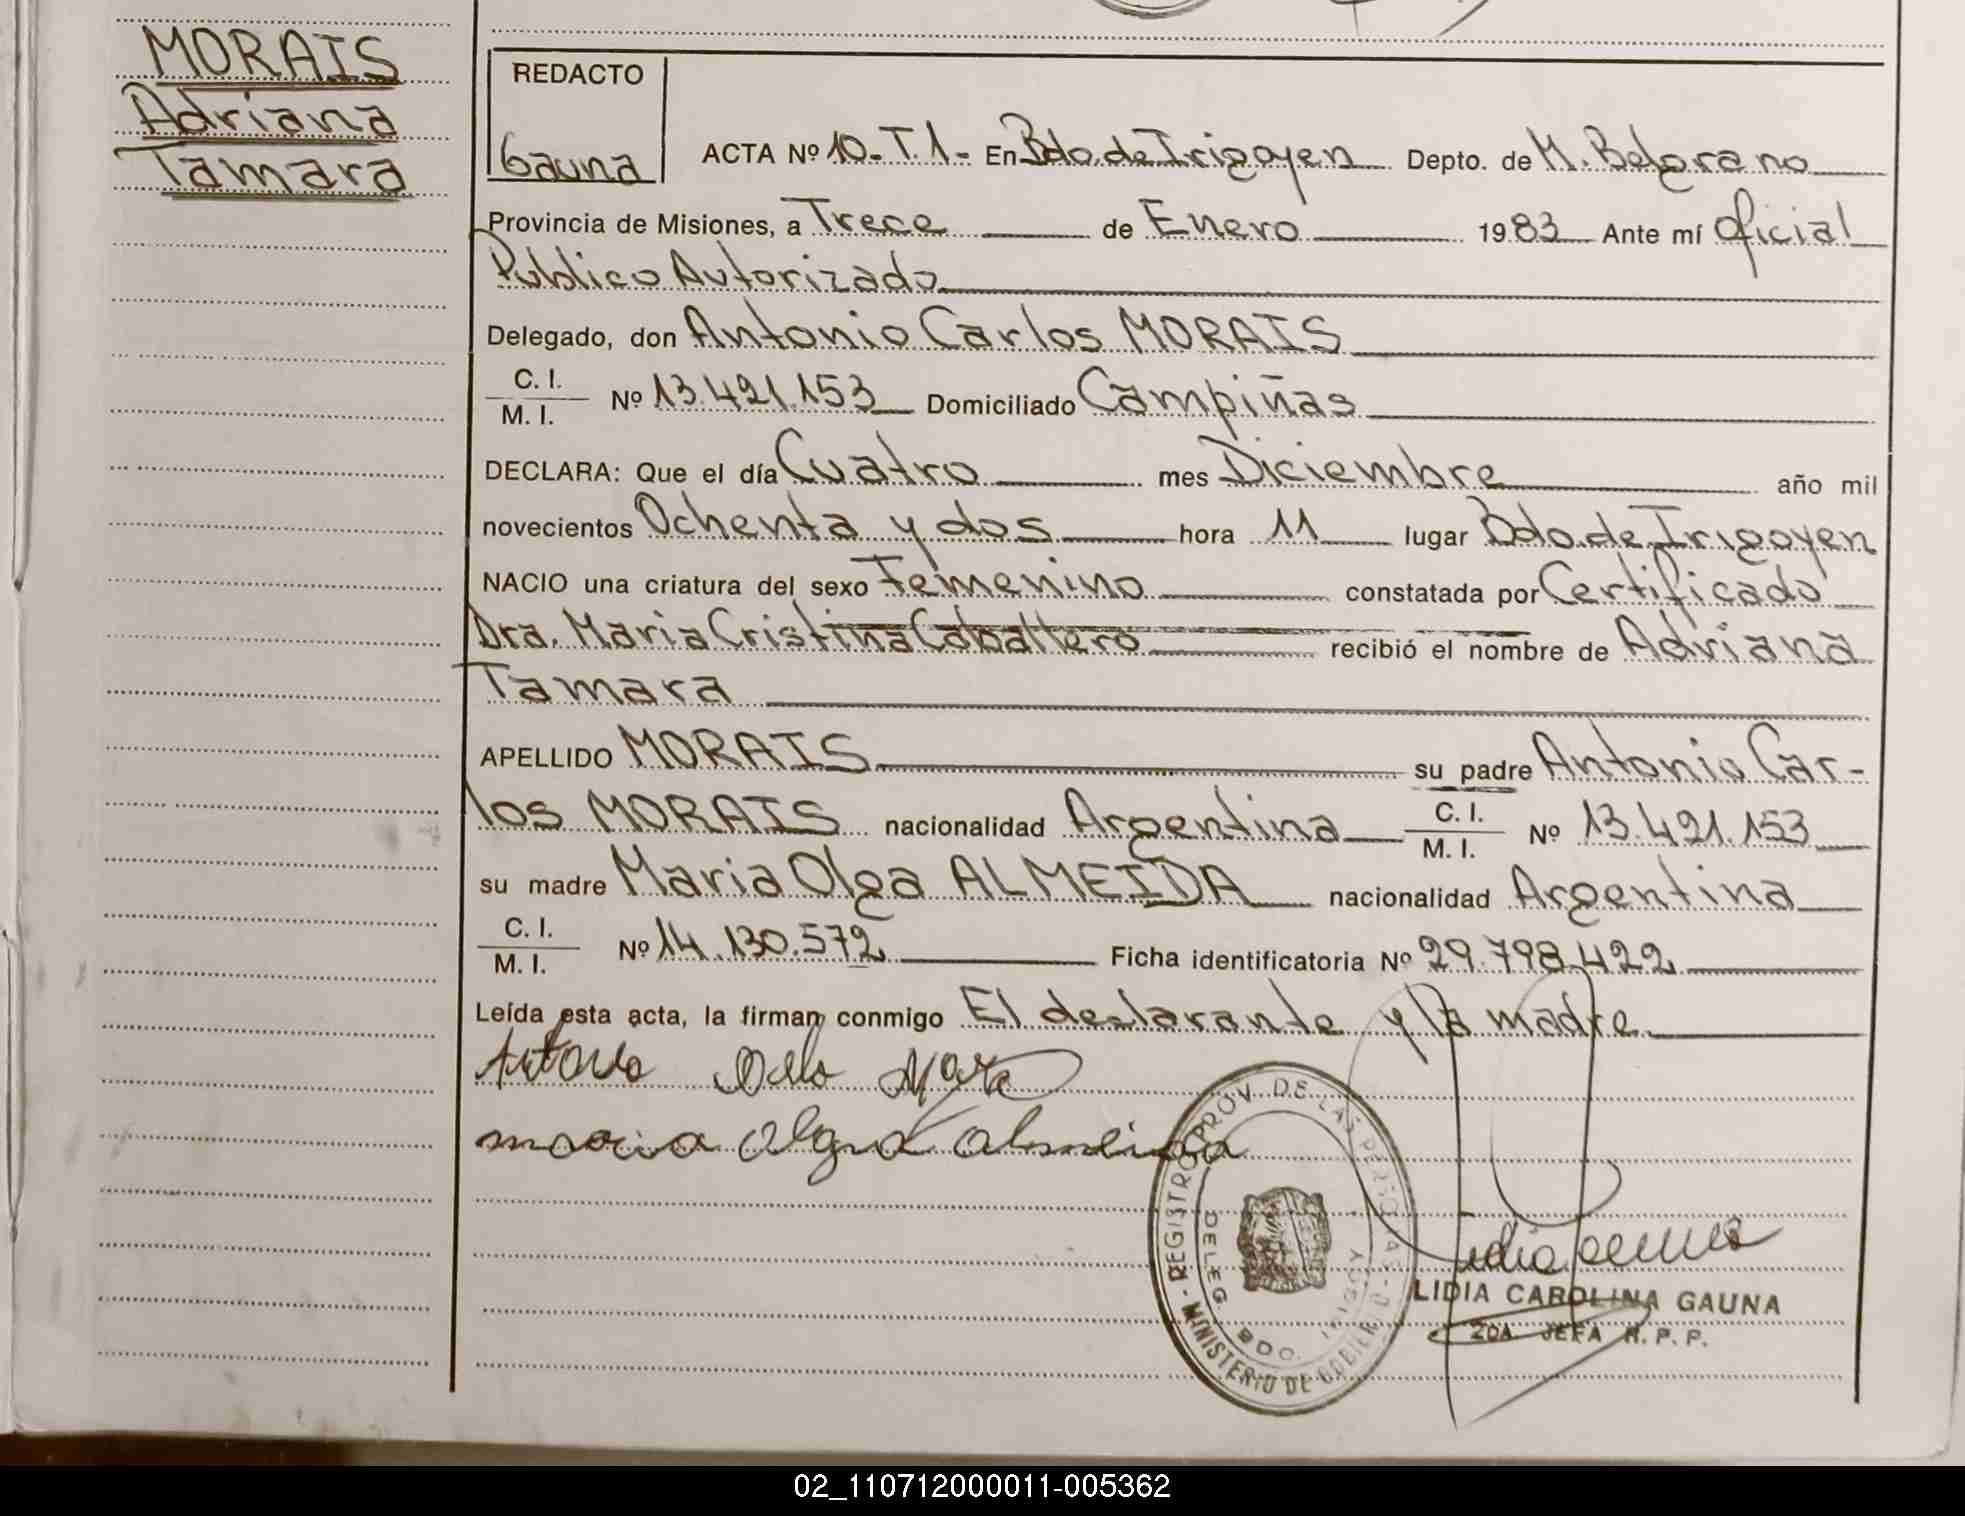 MORAIS
Adriana
Tamara
REDACTO
Gauna
ACTA Nº 10-T.1- En Bdo.de Irigoyen Depto. de M. Belgrano
Provincia de Misiones, a Trece de Enero 1983 Ante mí Oficial
Publico Autorizado
Delegado, don Antonio Carlos MORAIS
C. I.
M. I. Nº 13.421.153 Domiciliado Campiñas
DECLARA: Que el día Cuatro mes Diciembre año mil
novecientos Ochenta y dos hora 11 lugar Bdo.de Irigoyen
NACIO una criatura del sexo Femenino constatada por Certificado
Dra. Maria Cristina Caballero recibió el nombre de Adriana
Tamara
APELLIDO MORAIS su padre Antonio Car-
los MORAIS nacionalidad Argentina C. I.
M. I. Nº 13.421.153
su madre Maria Olga ALMEIDA nacionalidad Argentina
C. I.
M. I. Nº 14.130.572 Ficha identificatoria Nº 29.798.422
Leída esta acta, la firman conmigo El declarante y la madre
maria olga almeida
REGISTRO PROV. DE LAS PERSONAS - MINISTERIO DE GOBIERNO -
DELEG. BDO. IRIGOY.
LIDIA CAROLINA GAUNA
2DA JEFA R. P. P.
02_110712000011-005362